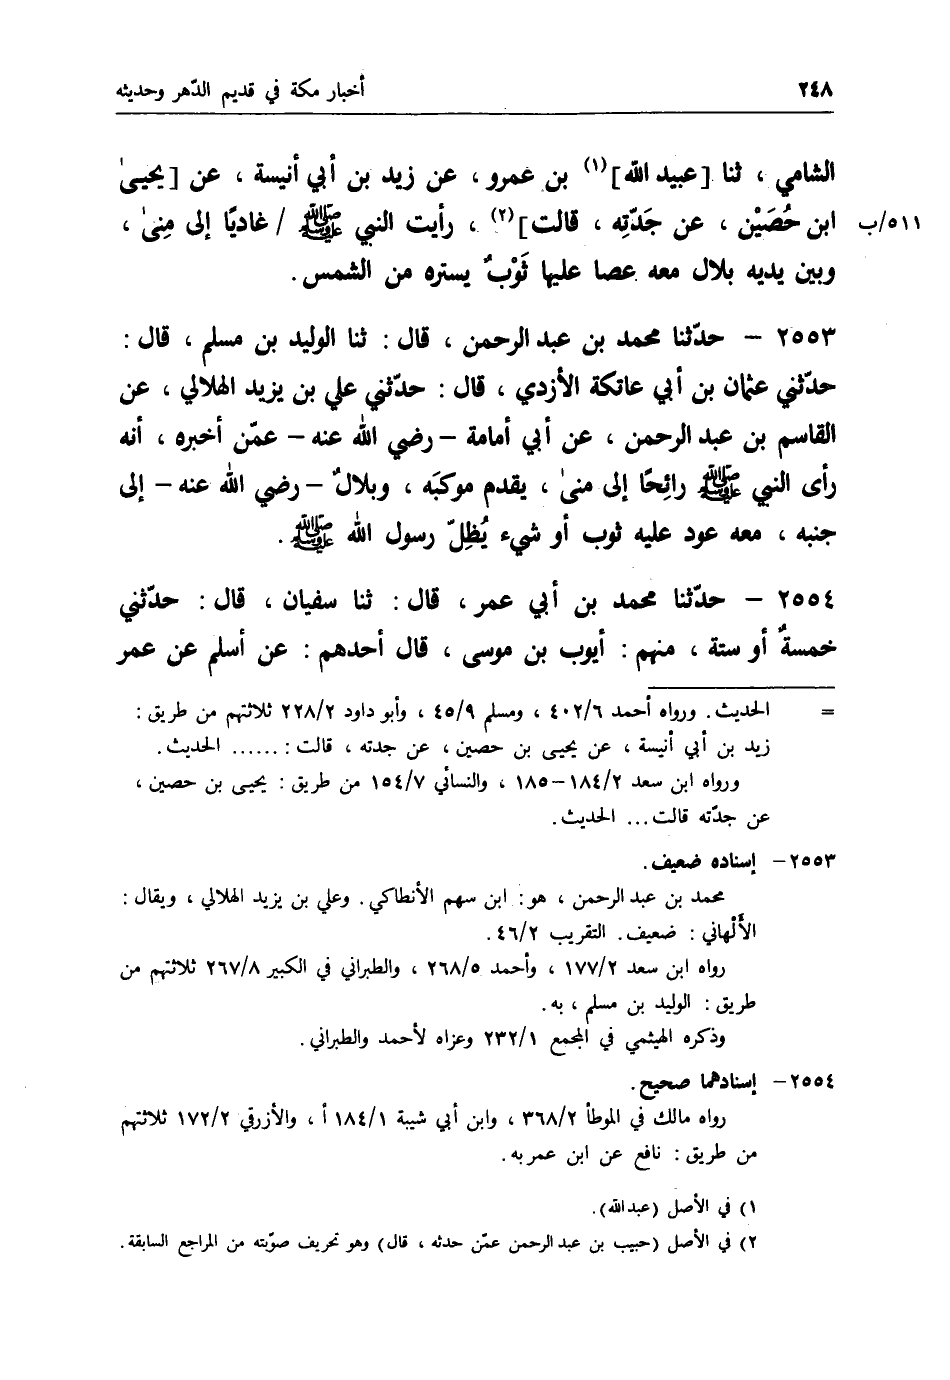 ٢٤٨ أخبار مكة في قديم الدّهر وحديثه
الشامي ، ثنا [عبيد الله](١) بن عمرو ، عن زيد بن أبي أنيسة ، عن [يحيىٰ
٥١١/ب ابن حُصَيْن ، عن جَدّتِه ، قالت](٢) ، رأيت النبي ﷺ / غاديًا إلى مِنىٰ ،
وبين يديه بلال معه عصا عليها ثَوْبٌ يستره من الشمس .
٢٥٥٣ – حدّثنا محمد بن عبد الرحمن ، قال : ثنا الوليد بن مسلم ، قال :
حدّثني عثمان بن أبي عاتكة الأزدي ، قال : حدّثني علي بن يزيد الهلالي ، عن
القاسم بن عبد الرحمن ، عن أبي أمامة –رضي الله عنه– عمّن أخبره ، أنه
رأى النبي ﷺ رائِحًا إلى منىٰ ، يقدم موكبَه ، وبلالٌ –رضي الله عنه– إلى
جنبه ، معه عود عليه ثوب أو شيء يُظِلّ رسول الله ﷺ .
٢٥٥٤ – حدّثنا محمد بن أبي عمر ، قال : ثنا سفيان ، قال : حدّثني
خمسةٌ أو ستة ، منهم : أيوب بن موسى ، قال أحدهم : عن أسلم عن عمر
= الحديث. ورواه أحمد ٤٠٢/٦ ، ومسلم ٤٥/٩ ، وأبو داود ٢٢٨/٢ ثلاثتهم من طريق :
زيد بن أبي أنيسة ، عن يحيى بن حصين ، عن جدته ، قالت : ...... الحديث.
ورواه ابن سعد ١٨٤/٢–١٨٥ ، والنسائي ١٥٤/٧ من طريق : يحيى بن حصين ،
عن جدّته قالت... الحديث.
٢٥٥٣– إسناده ضعيف.
محمد بن عبد الرحمن ، هو : ابن سهم الأنطاكي. وعلي بن يزيد الهلالي ، ويقال :
الأَلْهاني : ضعيف. التقريب ٤٦/٢.
رواه ابن سعد ١٧٧/٢ ، وأحمد ٢٦٨/٥ ، والطبراني في الكبير ٢٦٧/٨ ثلاثتهم من
طريق : الوليد بن مسلم ، به.
وذكره الهيثمي في المجمع ٢٣٢/١ وعزاه لأحمد والطبراني.
٢٥٥٤– إسنادهما صحيح.
رواه مالك في الموطأ ٣٦٨/٢ ، وابن أبي شيبة ١٨٤/١ أ ، والأزرقي ١٧٢/٢ ثلاثتهم
من طريق : نافع عن ابن عمر به.
١) في الأصل (عبدالله).
٢) في الأصل (حبيب بن عبد الرحمن عمّن حدثه ، قال) وهو تحريف صوّبته من المراجع السابقة.